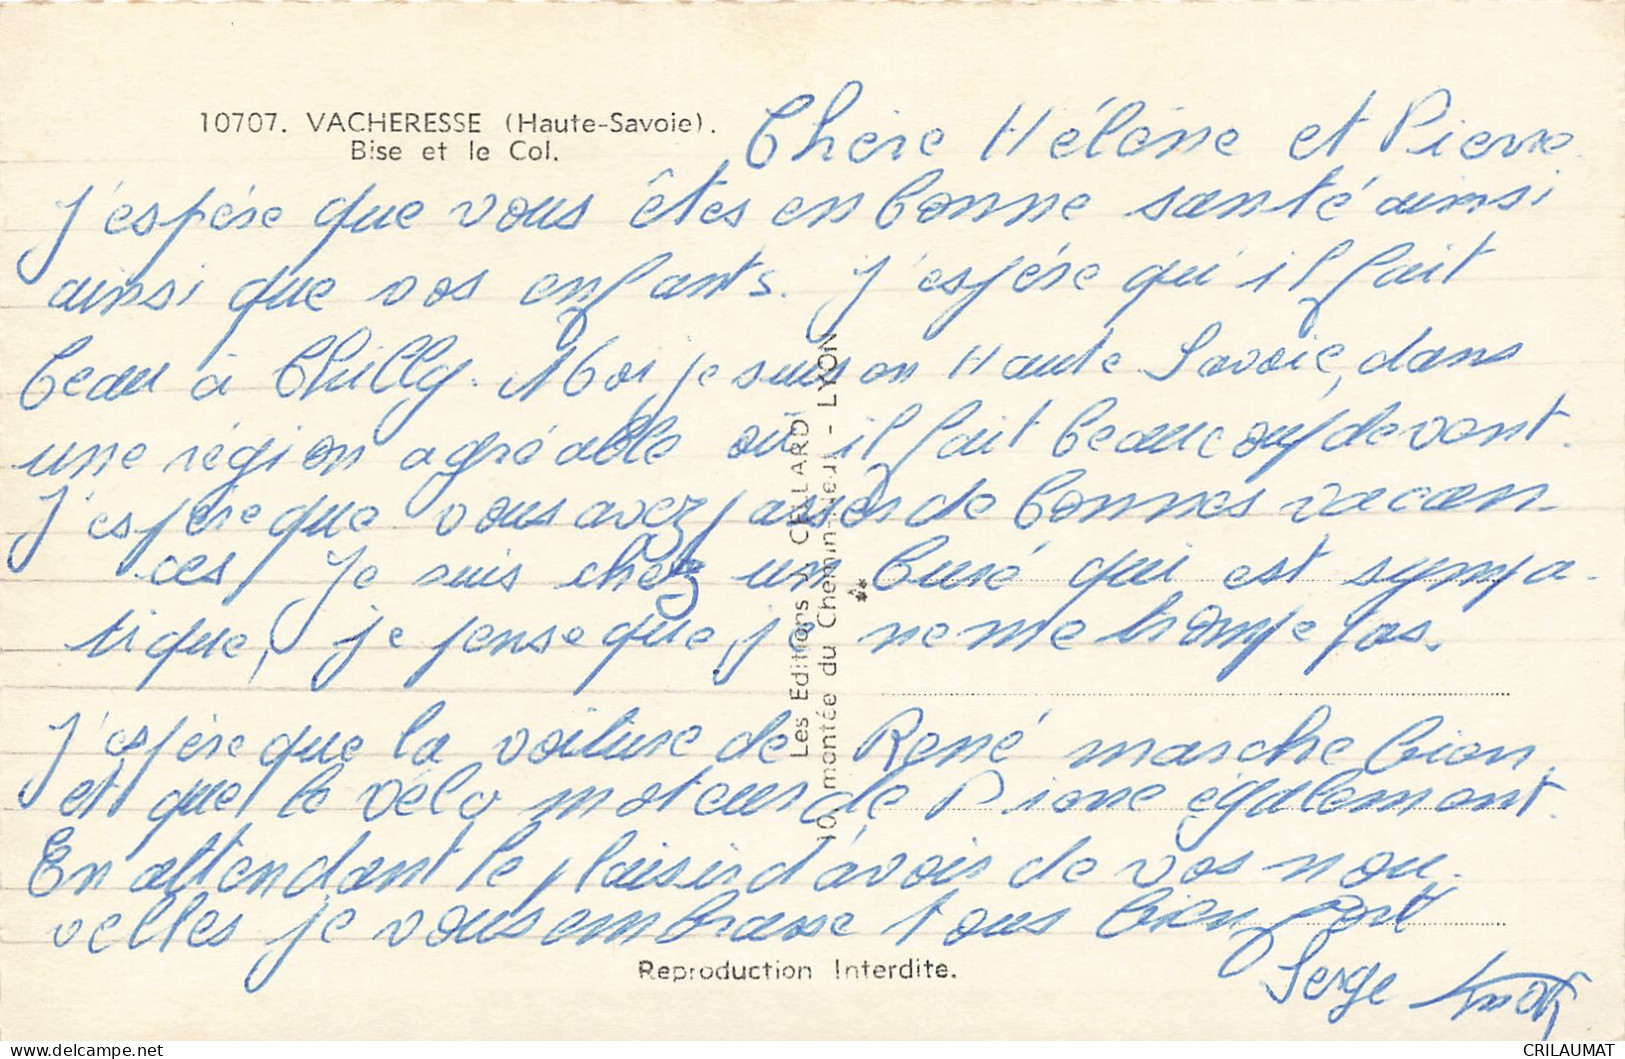 10707. VACHERESSE (Haute-Savoie).
Bise et le Col.
Chère Hélène et Pierre
J'espère que vous êtes en bonne santé ainsi
ainsi que vos enfants. J'espère qu'il fait
beau à Chilly. Moi je suis en Haute Savoie, dans
une région agréable où il fait beaucoup de vent.
J'espère que vous avez passer de bonnes vacan-
ces. Je suis chez un curé qui est sympa-
tique, je pense que je ne me trompe pas.
J'espère que la voiture de René marche bien
et que le vélo moteur de Pierre également.
En attendant le plaisir d'avoir de vos nou-
velles je vous embrasse tous bien fort
Serge
Les Editions J. CELLARD
10, montée du Chemin-Neuf - LYON
Reproduction Interdite.
delcampe.net
CRILAUMAT